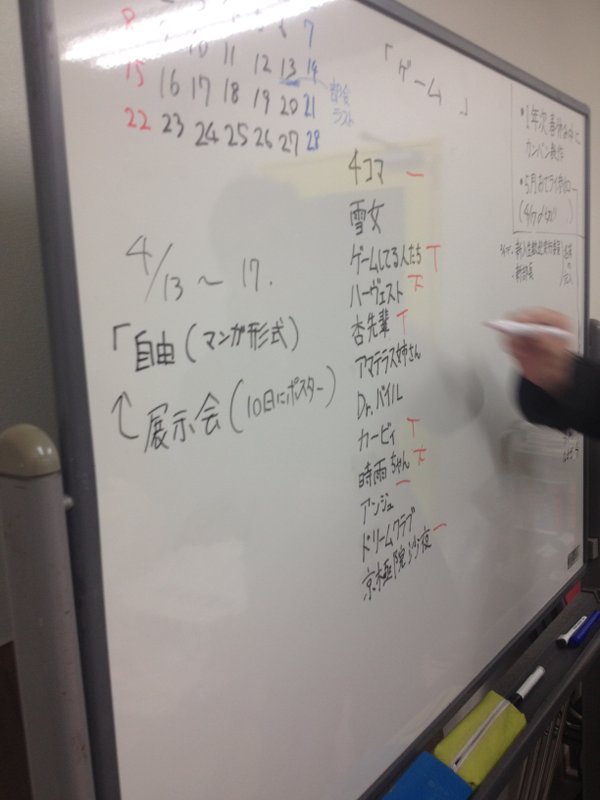 8
7
15
10 11 12 13 14
16 17 18 19 20 21
22 23 24 25 26 27 28
部会
ラスト
「ゲーム」
・1年次
カンバン製作
・5月
4/13〜17.
「自由(マンガ形式)
↑展示会(10日にポスター)
4コマ 一
雪女
ゲームしてる人たち T
ハーヴェスト 下
杏先輩 T
アマテラス姉さん
Dr.バイル
カービィ T
時雨ちゃん 下
アンジュ 一
ドリームクラブ
京極院沙夜 一
・新部長